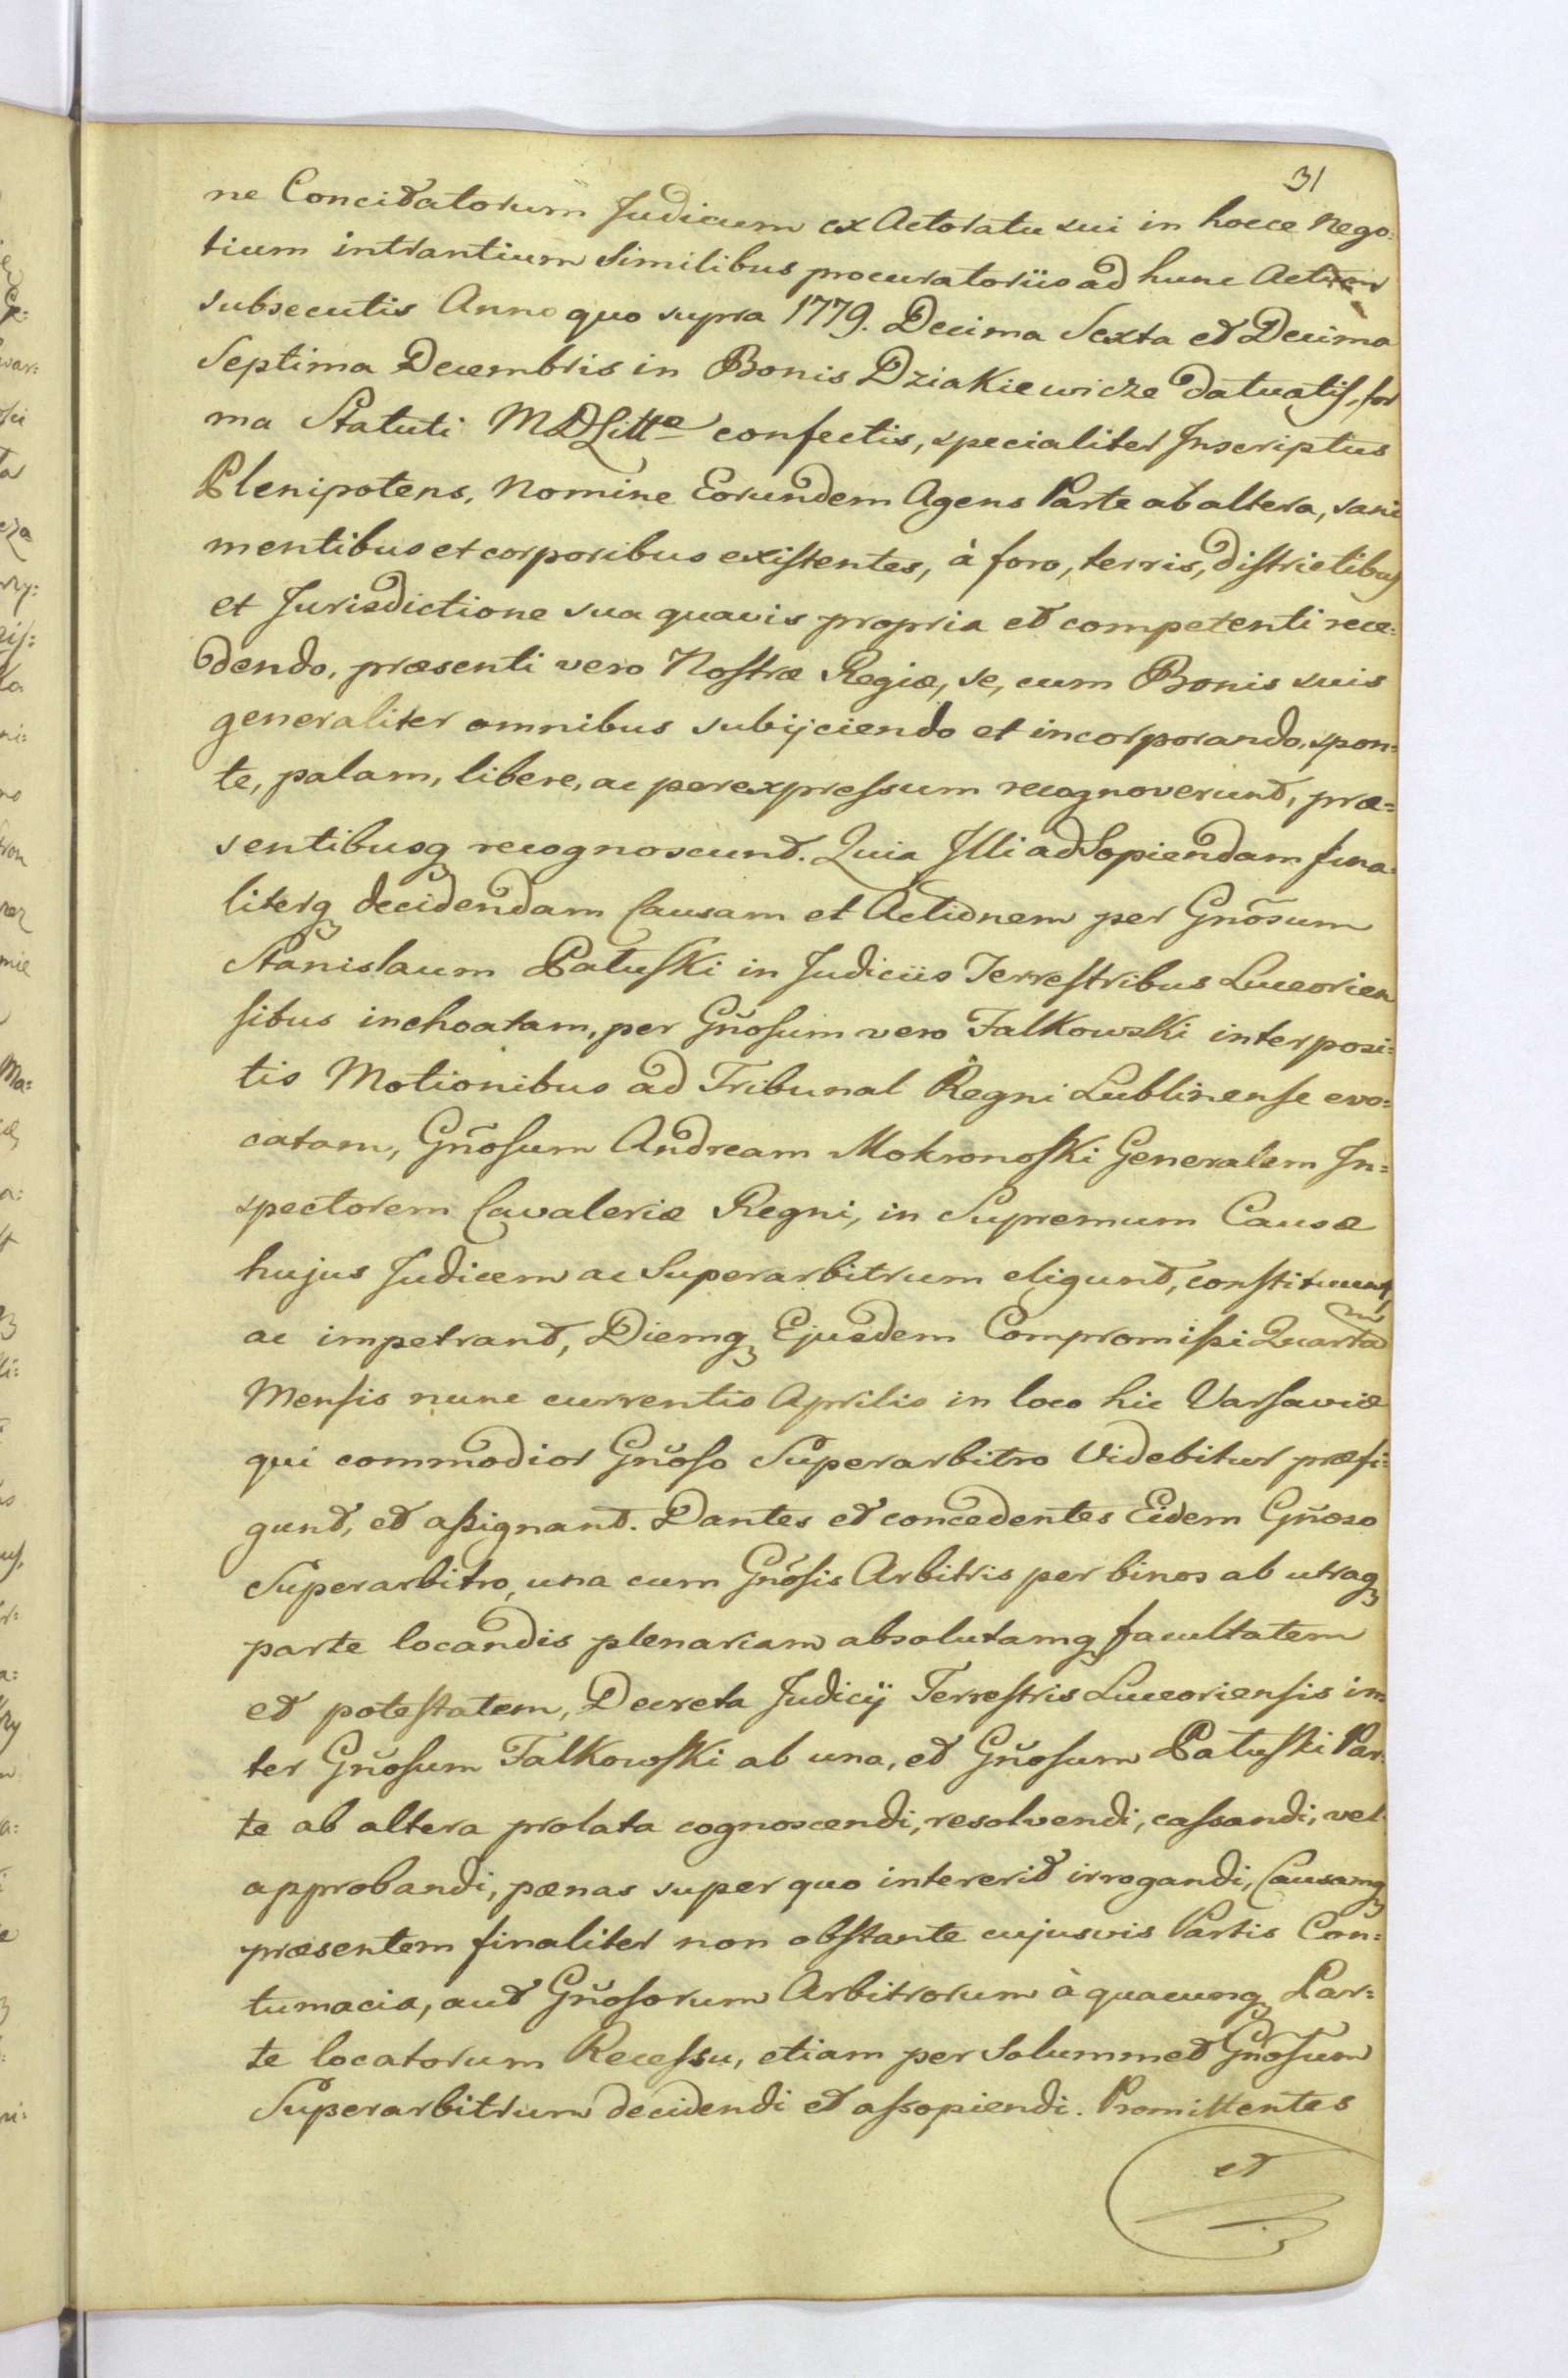 31
ne Concitatorum Judicum ex Actoratu sui in hocce Nego:
tium intrantium Similibus procuratoriis ad hunc Actum
subsecutis Anno quo supra 1779. Decima Sexta et Decima
Septima Decembris in Bonis Dziakiewicze datuatis, for
ma Statuti MDLittᵉ confectis, specialiter Inscriptus
Plenipotens, Nomine Eorundem Agens Parte ab altera, sani
mentibus et corporibus existentes, à foro, terris, districtibus
et Jurisdictione sua quavis propria et competenti rece:
dendo, præsenti vero Nostræ Regiæ, se, cum Bonis suis
generaliter omnibus subijciendo et incorporando, spon=
te, palam, libere, ac per expressum recognoverunt, præ=
sentibusq recognoscunt. Quia Illi ad Sopiendam fina
literq decidendam Causam et Actionem per Gñosum
Stanislaum Patuski in Judiciis Terrestribus Luceorien
sibus inchoatam, per Gñosum vero Falkowski interposi=
tis Motionibus ad Tribunal Regni Lublinense evo=
catam, Gñosum Andream Mokronoski Generalem In=
spectorem Cavaleriæ Regni, in Supremum Causæ
hujus Judicem ac Superarbitrum eligunt, constituunt,
ac impetrant, Diemq Ejusdem Compromissi Quartam
Mensis nunc currentis Aprilis in loco hic Varsaviæ
qui commodior Gñoso Superarbitro Videbitur præfi=
gunt, et assignant. Dantes et concedentes Eidem Gñoso
Superarbitro, una cum Gñosis Arbitris per binos ab utraq
parte locandis plenariam absolutamq facultatem
et potestatem, Decreta Judicij Terrestris Luceoriensis in
ter Gñosum Falkowski ab una, et Gñosum Patuski Par:
te ab altera prolata cognoscendi, resolvendi, cassandi, vel
approbandi, pænas super quo intererit irrogandi, Causamq
præsentem finaliter non obstante cujusvis Partis Con=
tumacia, aut Gñosorum Arbitrorum à quacunq Par=
te locatorum Recessu, etiam per Solummet Gñosum
Superarbitrum decidendi et assopiendi. Promittentes
et